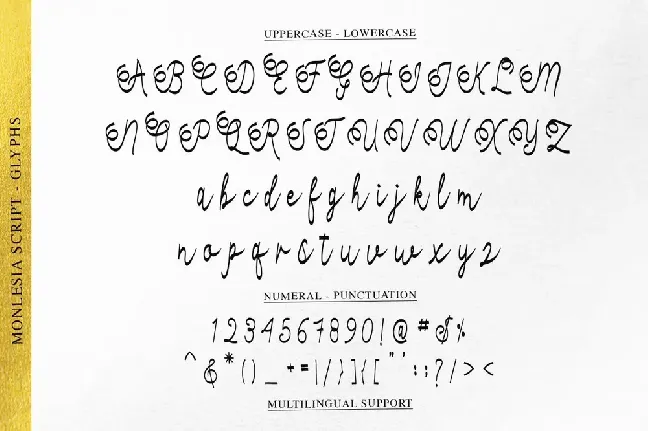 MONLESIA SCRIPT - GLYPHS
UPPERCASE - LOWERCASE
A B C D E F G H I J K L M
N O P Q R S T U V W X Y Z
a b c d e f g h i j k l m
n o p q r s t u v w x y z
NUMERAL - PUNCTUATION
1 2 3 4 5 6 7 8 9 0 ! @ # $ %
^ & * ( ) _ + = \ / } ] { [ " ' : ; ? / > <
MULTILINGUAL SUPPORT